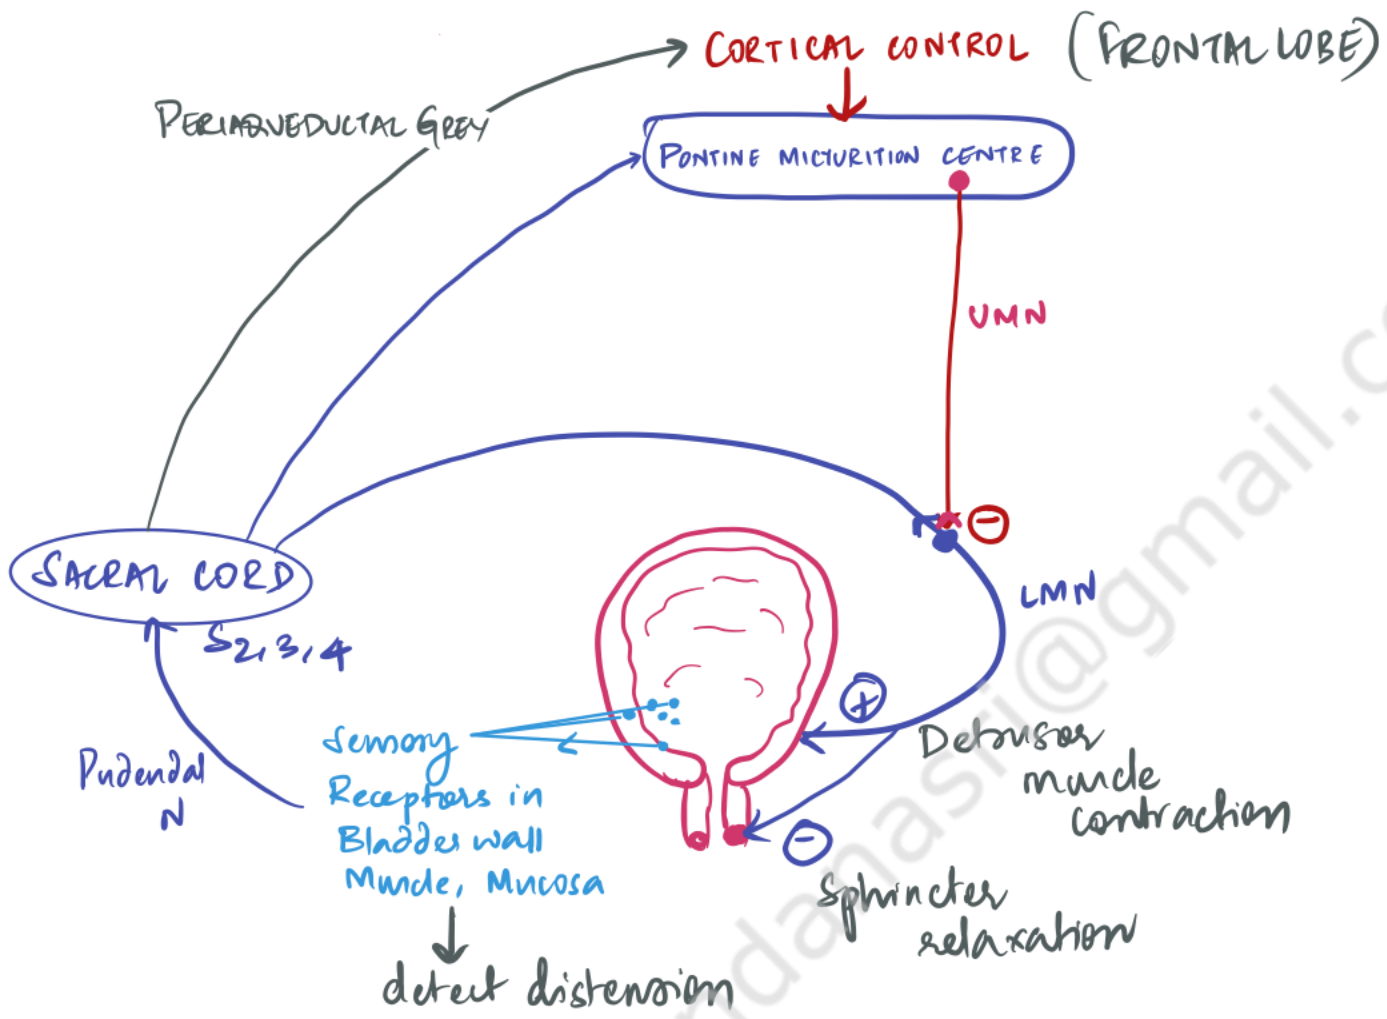 CORTICAL CONTROL (FRONTAL LOBE)
PERIAQUEDUCTAL GREY
PONTINE MICTURITION CENTRE
UMN
-
SACRAL CORD
S2,3,4
LMN
+
Pudendal
N
Sensory
Receptors in
Bladder wall
Muscle, Mucosa
detect distension
Detrusor
muscle
contraction
-
Sphincter
relaxation
ndanasri@gmail.c